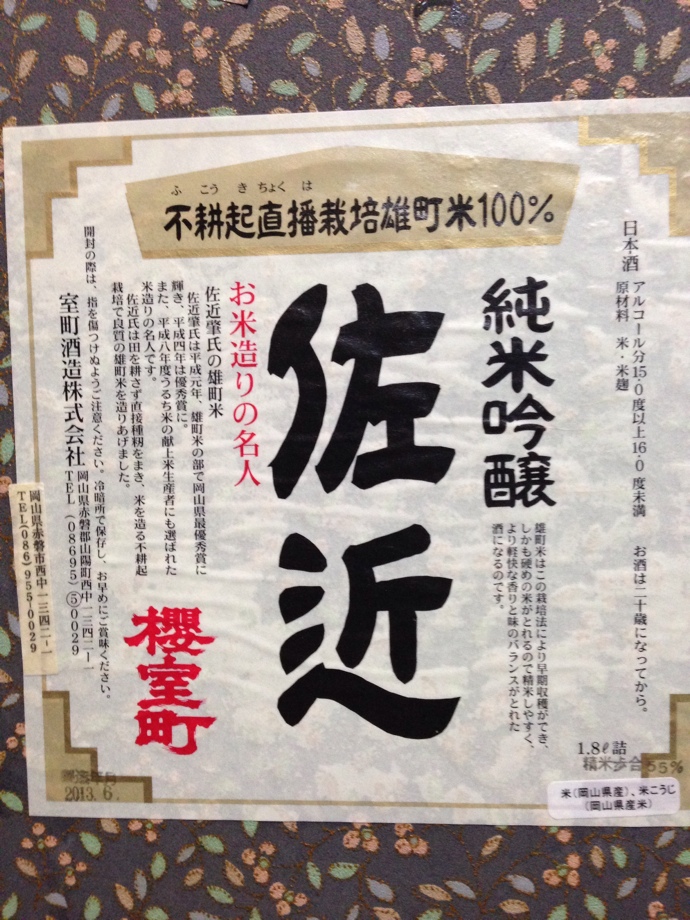 ふこうきちょくは
不耕起直播栽培雄町米100%
日本酒
アルコール分15.0度以上16.0度未満
原材料 米・米麹
お酒は二十歳になってから。
純米吟醸
雄町米はこの栽培法により早期収穫ができ、
しかも硬めの米がとれるので精米しやすく、
より軽快な香りと味のバランスがとれた
酒になるのです。
佐近
お米造りの名人
佐近肇氏の雄町米
佐近肇氏は平成元年、雄町米の部で岡山県最優秀賞に
輝き、平成四年は優秀賞に。
また、平成八年度うるち米の献上米生産者にも選ばれた
米造りの名人です。
佐近氏は田を耕さず直接種籾をまき、米を造る不耕起
栽培で良質の雄町米を造りあげました。
櫻室町
開封の際は、指を傷つけぬようご注意ください。冷暗所で保存し、お早めにご賞味ください。
室町酒造株式会社
岡山県赤磐郡山陽町西中一三四二-一
TEL(08695)⑤0029
岡山県赤磐市西中一三四二-一
TEL(086)955-0029
1.8ℓ詰
精米歩合55%
米(岡山県産)、米こうじ
(岡山県産米)
2013.6.